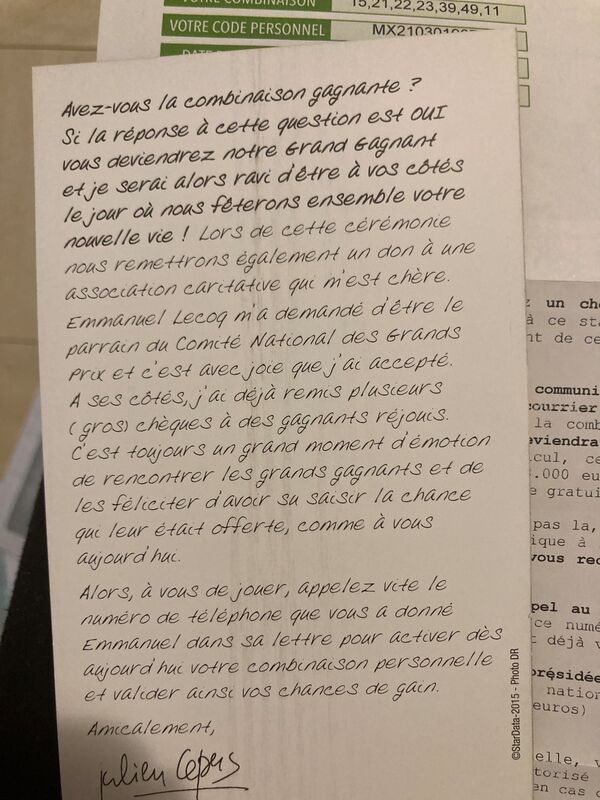 VOTRE COMBINAISON 15,21,22,23,39,49,11
VOTRE CODE PERSONNEL
Avez-vous la combinaison gagnante ?
Si la réponse à cette question est OUI
vous deviendrez notre Grand Gagnant
et je serai alors ravi d'être à vos côtés
le jour où nous fêterons ensemble votre
nouvelle vie ! Lors de cette cérémonie
nous remettrons également un don à une
association caritative qui m'est chère.
Emmanuel Lecoq m'a demandé d'être le
parrain du Comité National des Grands
Prix et c'est avec joie que j'ai accepté.
A ses côtés, j'ai déjà remis plusieurs
(gros) chèques à des gagnants réjouis.
C'est toujours un grand moment d'émotion
de rencontrer les grands gagnants et de
les féliciter d'avoir su saisir la chance
qui leur était offerte, comme à vous
aujourd'hui.
Alors, à vous de jouer, appelez vite le
numéro de téléphone que vous a donné
Emmanuel dans sa lettre pour activer dès
aujourd'hui votre combinaison personnelle
et valider ainsi vos chances de gain.
Amicalement,
Julien Lepers
©StarData-2015 - Photo DR
un
à ce
nt de ce
communi
courrier
la comb
eviendra
cul, ce
.000 eu
e gratui
pas la,
ique à
vous rec
pel au
ce numé
t déjà v
présidée
nation
euros)
elle, v
torisé
en cas